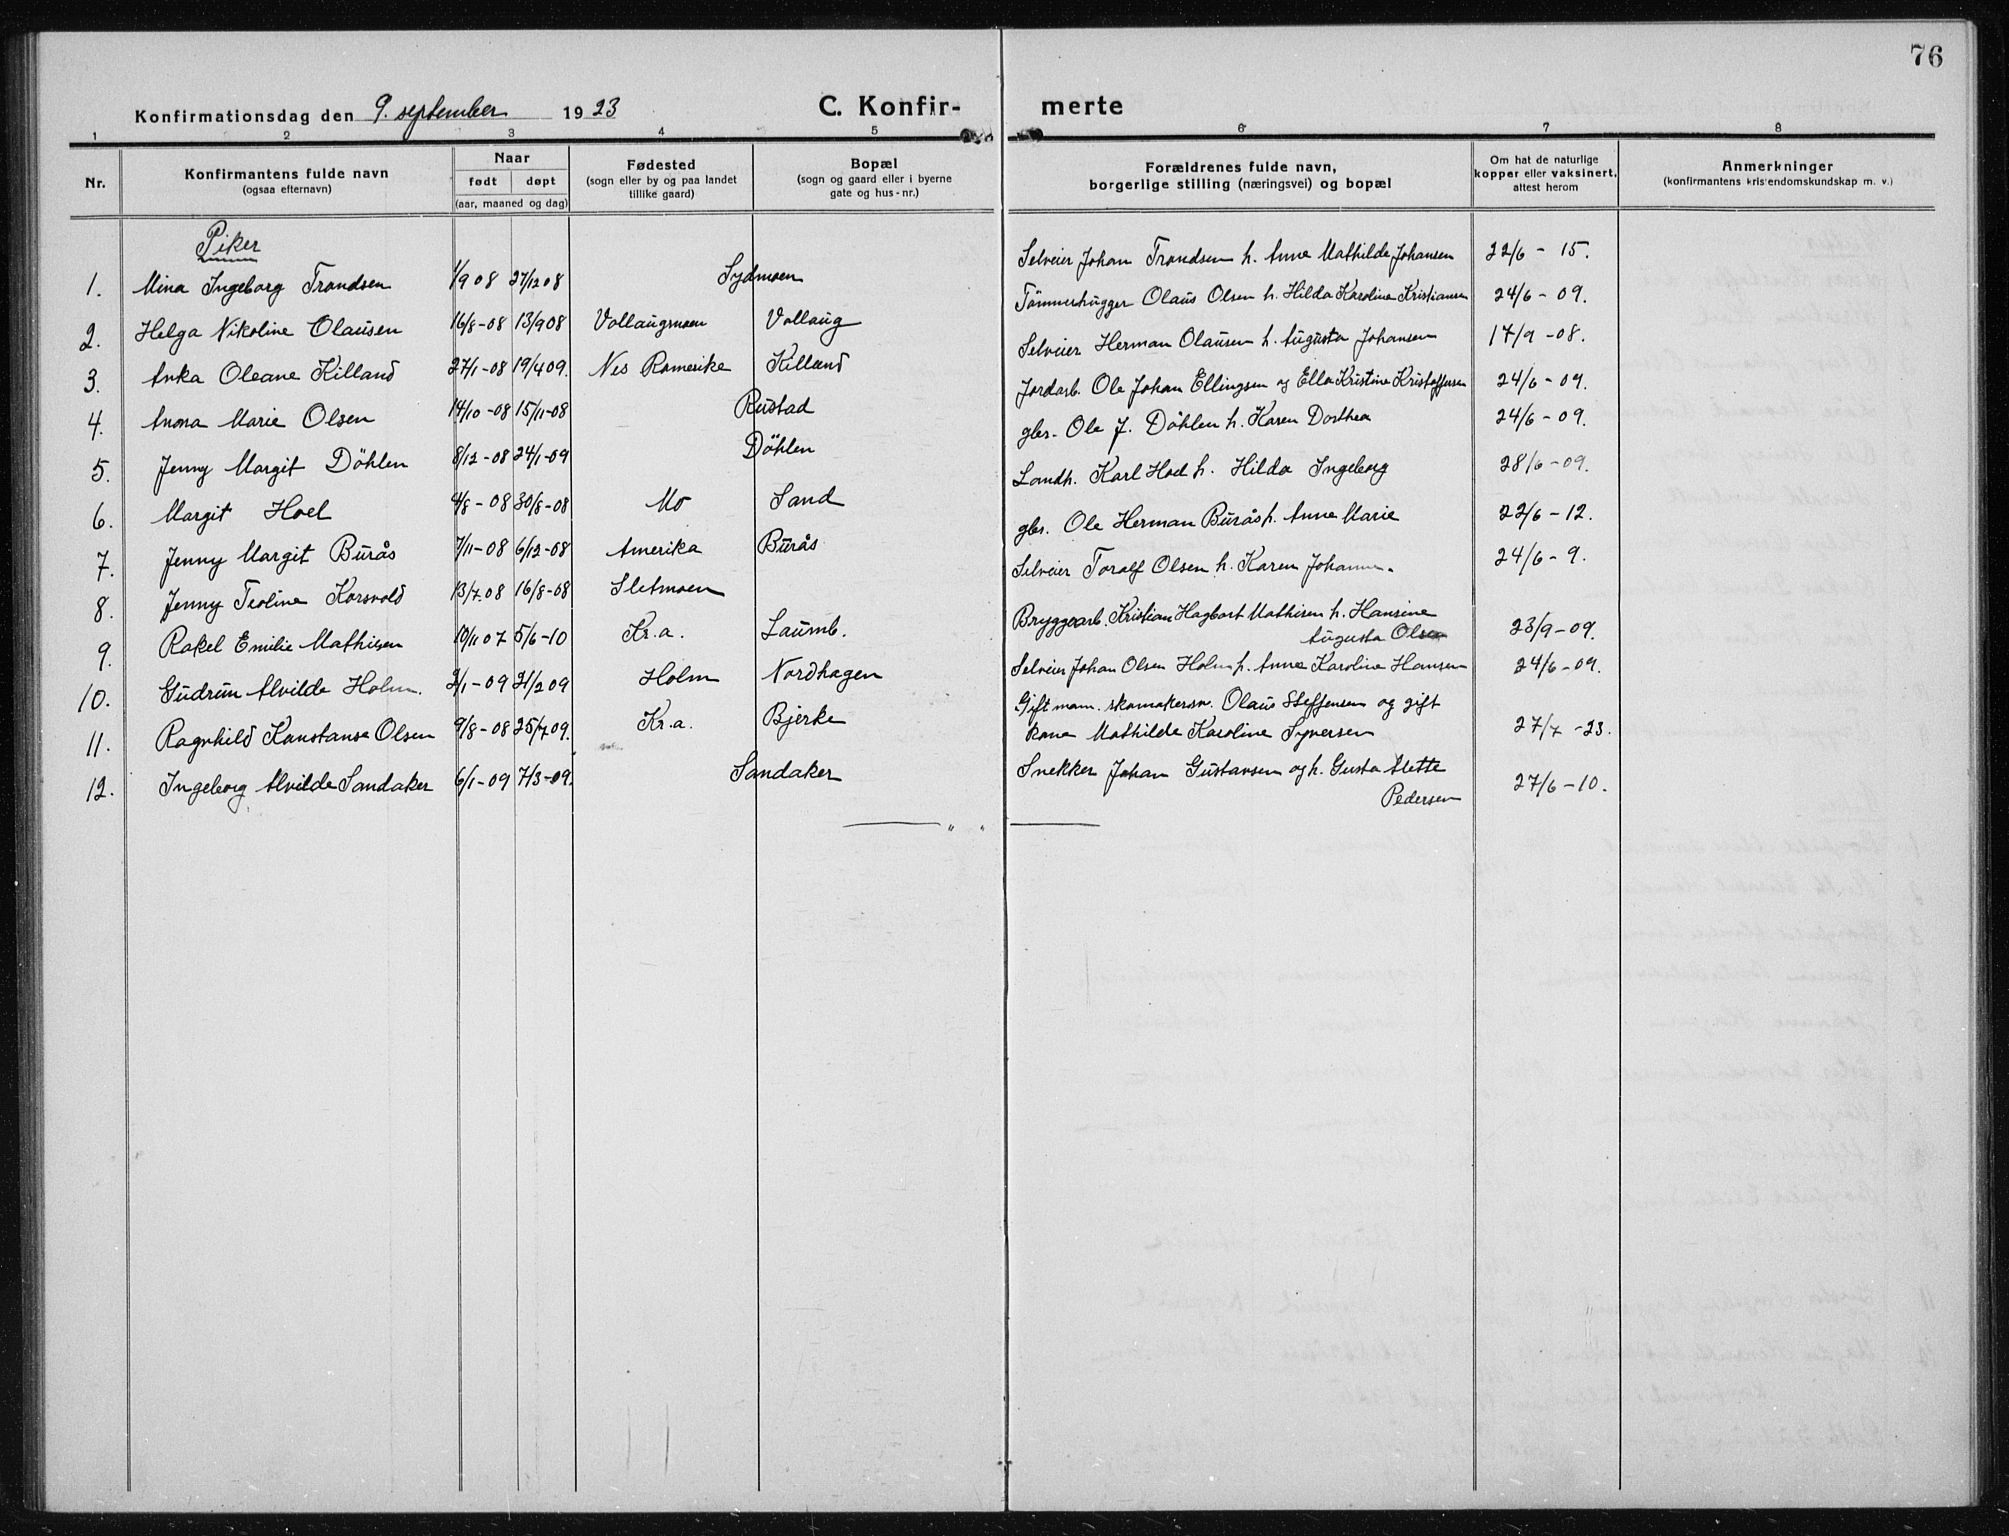 76
Konfirmationsdag den 9. september 1923 C. Konfir- merte
1 2 3 4 5 6 7 8
Nr. Konfirmantens fulde navn (ogsaa efternavn) Naar født døpt (aar, maaned og dag) Fødested (sogn eller by og paa landet tillike gaard) Bopæl (sogn og gaard eller i byerne gate og hus-nr.) Forældrenes fulde navn, borgerlige stilling (næringsvei) og bopæl Om hat de naturlige kopper eller vaksinert, attest herom Anmerkninger (konfirmantens kristendomskundskap m. v.)
Piker
1. Mina Ingeborg Trondsen 1/9 08 27/12 08 Sydmoen Selveier Johan Trondsen h. Anne Mathilde Johansen 22/6 - 15.
2. Helga Nikoline Olausen 16/8-08 13/9 08 Vollaugmoen Vollaug Tømmerhugger Olaus Olsen h. Hilda Karoline Kristiansen 24/6 - 09.
3. Anka Oleane Killand 27/1-08 19/4 09. Nes Romerike Killand Selveier Herman Olausen h. Augusta Johansen 17/9 -08.
4. Anna Marie Olsen 14/10-08 15/11-08 Rustad Jordarb. Ole Johan Ellingsen og Ella Kristine Kristoffersen 24/6 - 09.
5. Jenny Margit Döhlen 8/12-08 24/1-09 Döhlen gbr. Ole J. Döhlen h. Karen Dorthea 24/6 - 09.
6. Margit Hoel 4/8-08 30/8-08 Mo Sand Landh. Karl Hoel h. Hilda Ingeborg 28/6 - 09.
7. Jenny Margit Burås 7/11-08 6/12-08 Amerika Burås gbr. Ole Herman Burås h. Anne Marie 22/6 - 12.
8. Jenny Teoline Korsvold 13/7.08 16/8-08 Sletmoen Selveier Toralf Olsen h. Karen 24/6 - 9.
9. Rakel Emilie Mathisen 10/11 07 5/6-10 Kr.a. Saumb. Bryggearb. Kristian Hagbart Mathisen h. Hansine
Augusta Olsen 23/9-09.
10. Gudrun Alvilde Holm. 2/1-09 21/2 09 Holm Nordhagen Selveier Johan Olsen Holm h. Anne Karoline Hansen 24/6-09.
11. Ragnhild Konstanse Olsen 9/8-08 25/7 09. Kr.a. Bjerke Gift man. skomakersv. Olaus Steffensen og gift
kone Mathilde Karoline Syversen 27/7 -23.
12. Ingeborg Alvilde Sandaker 6/1-09 7/3-09. Sandaker Snekker Johan Gustavsen og h. Gusta Alette
Pedersen 27/6 - 10.